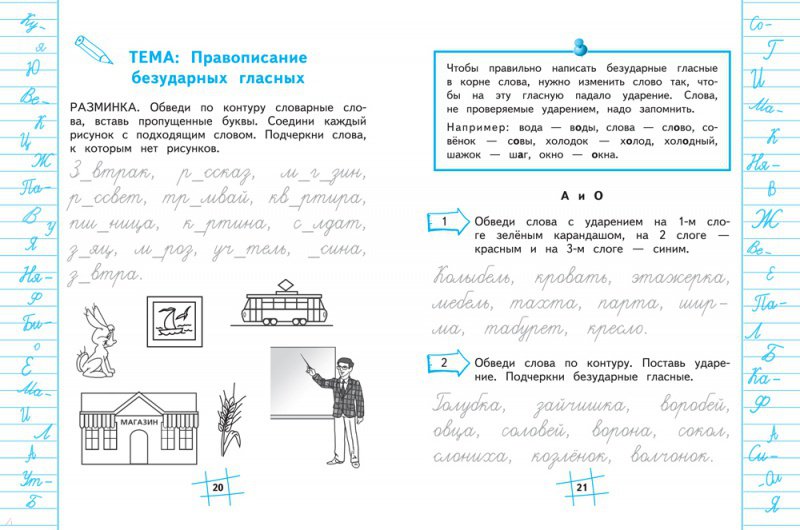 ТЕМА: Правописание
безударных гласных
РАЗМИНКА. Обведи по контуру словарные сло-
ва, вставь пропущенные буквы. Соедини каждый
рисунок с подходящим словом. Подчеркни слова,
к которым нет рисунков.
З_втрак, р_ссказ, м_г_зин,
р_ссвет, тр_мвай, кв_ртира,
пш_ница, к_ртина, с_лдат,
з_яц, м_роз, уч_тель, _сина,
з_втра.
МАГАЗИН
20
Чтобы правильно написать безударные гласные
в корне слова, нужно изменить слово так, что-
бы на эту гласную падало ударение. Слова,
не проверяемые ударением, надо запомнить.
Например: вода — воды, слова — слово, со-
вёнок — совы, холодок — холод, холодный,
шажок — шаг, окно — окна.
А и О
1 Обведи слова с ударением на 1-м сло-
ге зелёным карандашом, на 2 слоге —
красным и на 3-м слоге — синим.
Колыбель, кровать, этажерка,
мебель, тахта, парта, шир-
ма, табурет, кресло.
2 Обведи слова по контуру. Поставь ударе-
ние. Подчеркни безударные гласные.
Голубка, зайчишка, воробей,
овца, соловей, ворона, сокол,
слониха, козлёнок, волчонок.
21
Ку-
я
Ю
Ве-
К
Ц
Ж
Па-
В
у
Я
Ня-
Ф
Би-
о
Е
Ма-
И
Л
А
Ут-
Б
Со-
Г
И
Ма-
К
Ня-
В
Ж
Ве-
Е
Па-
Л
Б
Ка-
Ф
А
Си-
Ол
Я